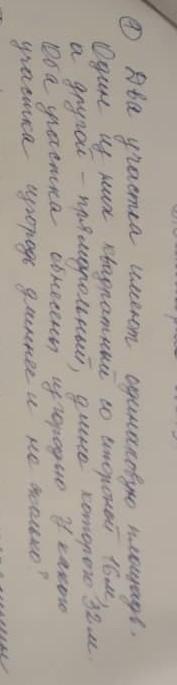 ① Два участка имеют одинаковую площадь.
Один из них квадратный со стороной 16 м,
а другой - прямоугольный, длина которого 32 м.
Оба участка обнесены изгородью. У какого
участка изгородь длиннее и на сколько?